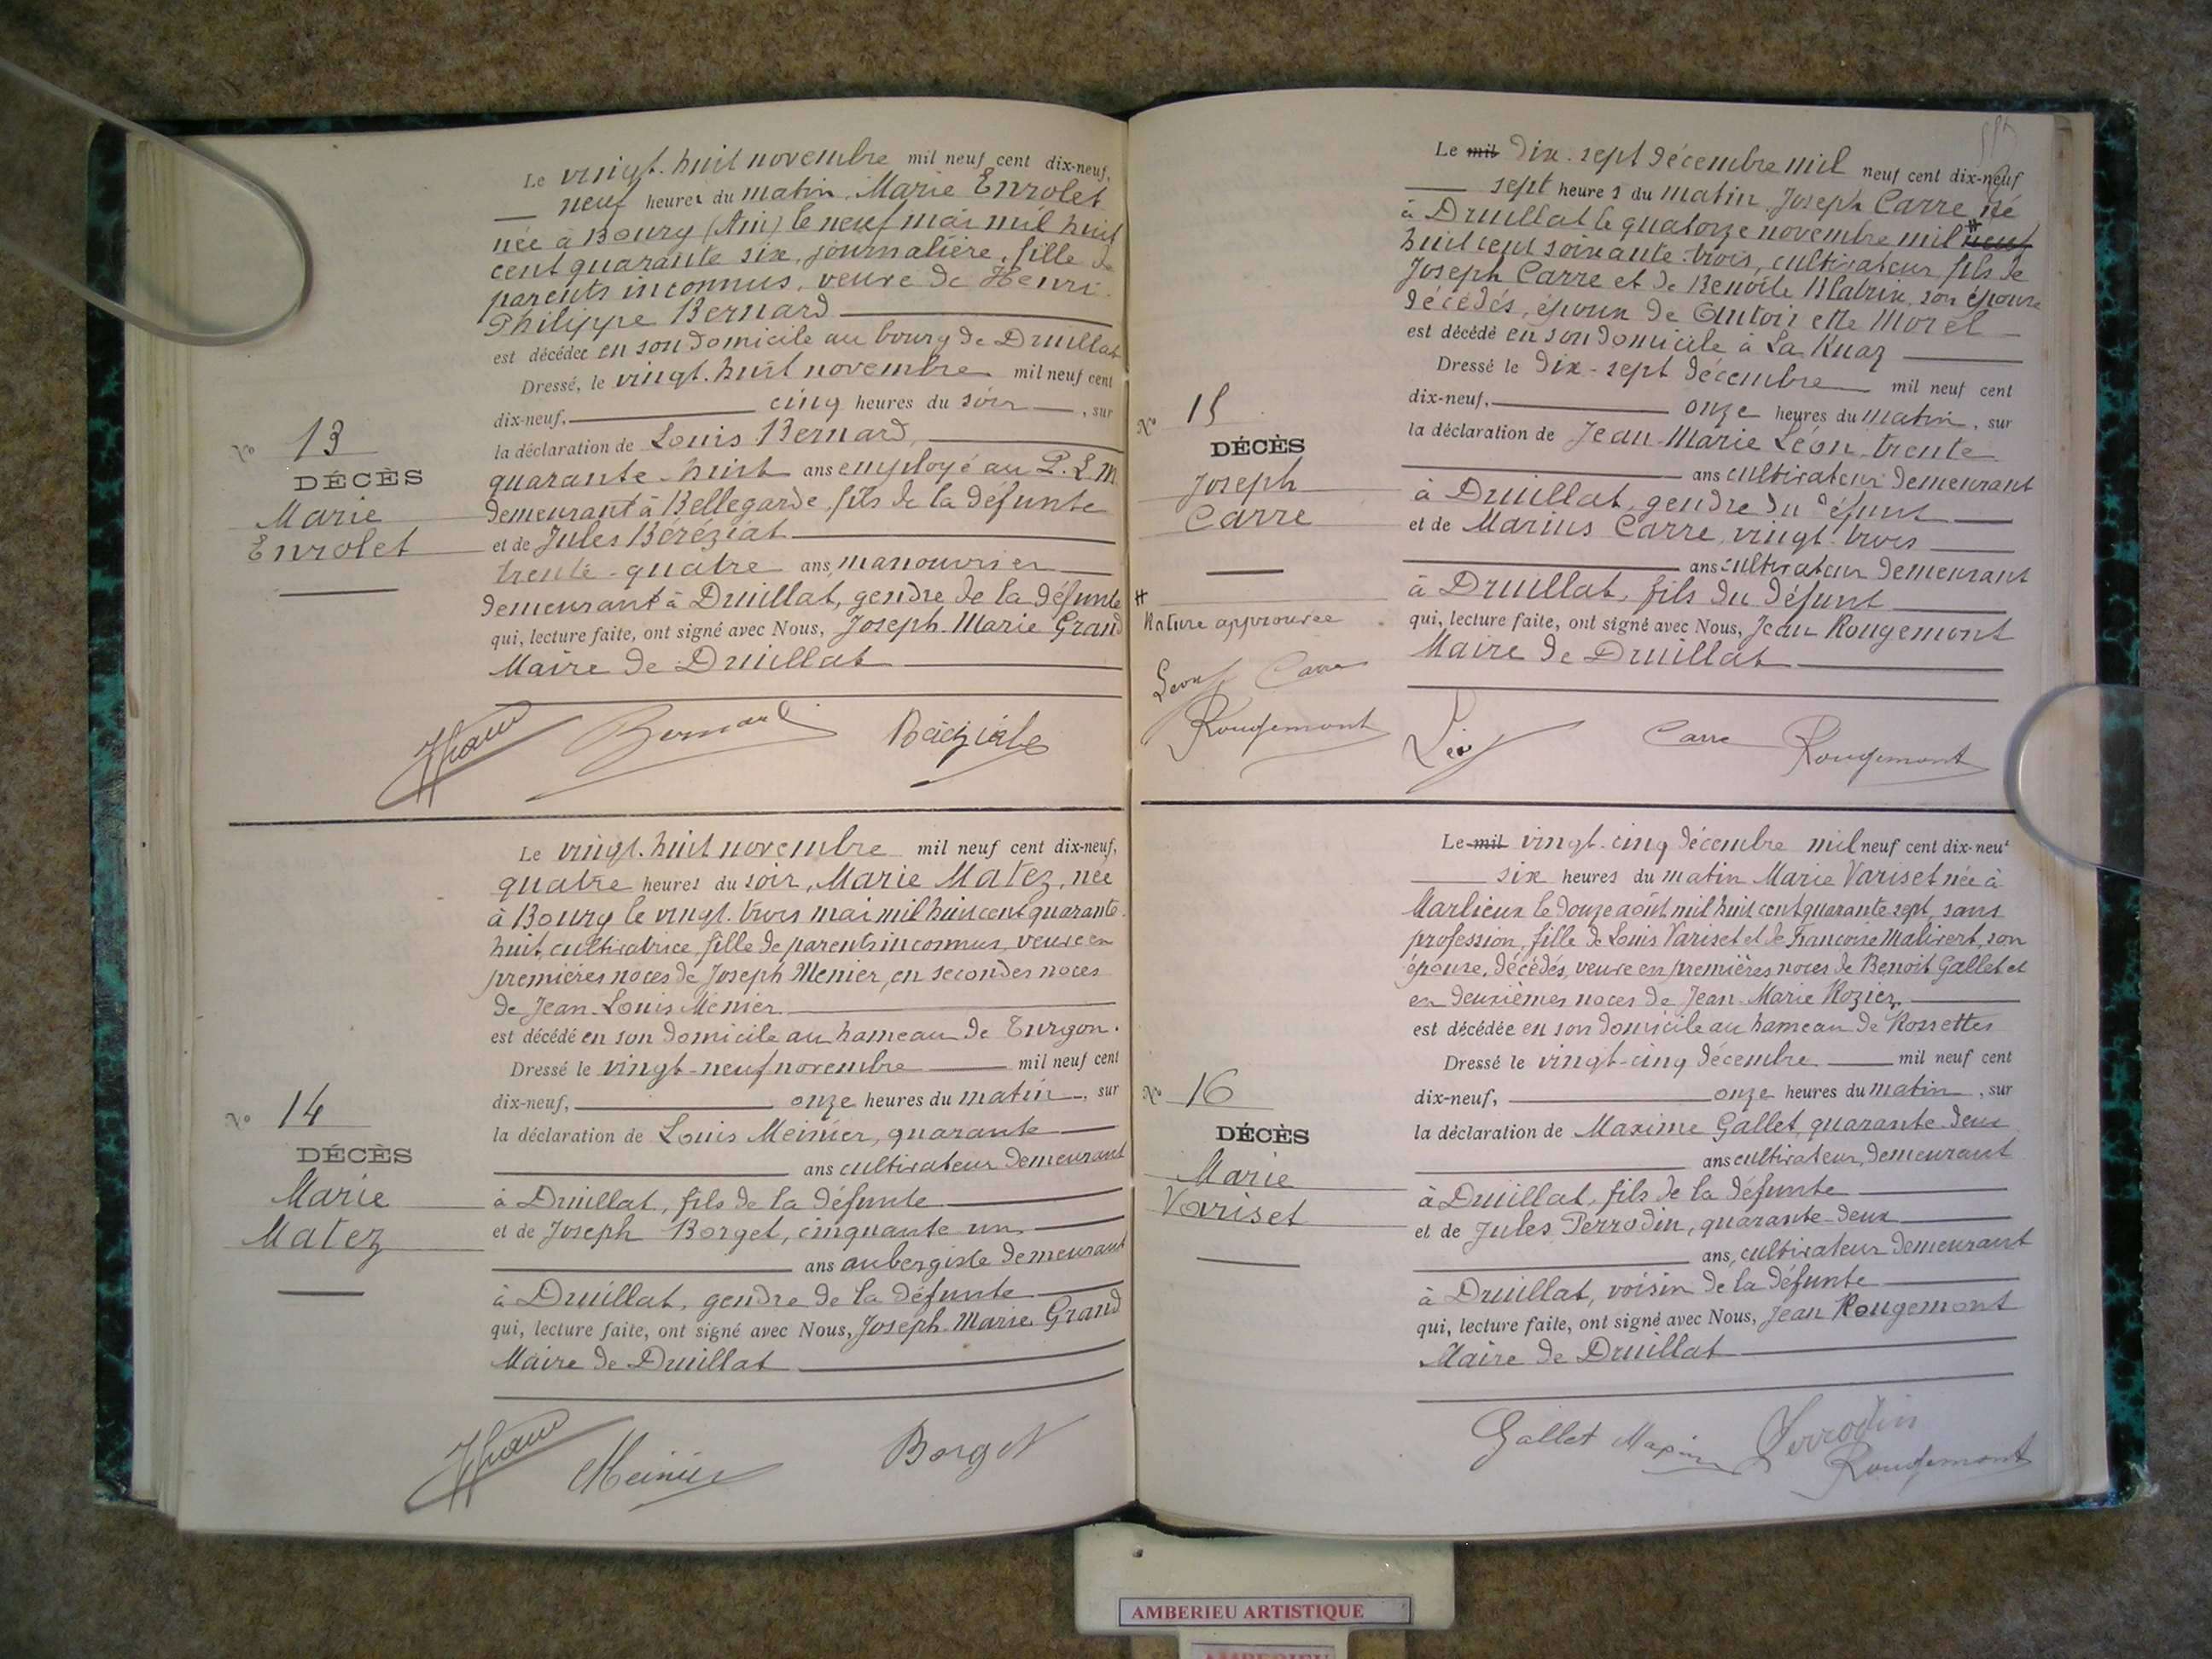 Le vingt-huit novembre mil neuf cent dix-neuf,
neuf heures du matin, Marie Enrolet
née à Bourg (Ain) le neuf mai mil huit
cent quarante six, journalière, fille de
parents inconnus, veuve de Henri
Philippe Bernard
est décédée en son domicile au bourg de Druillat
Dressé, le vingt-huit novembre mil neuf cent
dix-neuf, cinq heures du soir, sur
la déclaration de Louis Bernard,
quarante-huit ans employé au P.L.M.
demeurant à Bellegarde, fils de la défunte
et de Jules Béréziat
trente-quatre ans, manouvrier
demeurant à Druillat, gendre de la défunte
qui, lecture faite, ont signé avec Nous, Joseph-Marie Grand
Maire de Druillat
N° 13
DÉCÈS
Marie
Enrolet
Bernard
Le vingt-huit novembre mil neuf cent dix-neuf,
quatre heures du soir, Marie Matez, née
à Bourg le vingt-trois mai mil huit cent quarante
huit, cultivatrice, fille de parents inconnus, veuve en
premières noces de Joseph Menier, en secondes noces
de Jean-Louis Menier
est décédé en son domicile au hameau de Turgon.
Dressé le vingt-neuf novembre mil neuf cent
dix-neuf, onze heures du matin, sur
la déclaration de Louis Meinier, quarante
ans cultivateur demeurant
à Druillat, fils de la défunte
et de Joseph Borget, cinquante un
ans aubergiste demeurant
à Druillat, gendre de la défunte
qui, lecture faite, ont signé avec Nous, Joseph-Marie Grand
Maire de Druillat
N° 14
DÉCÈS
Marie
Matez
Meinier Borget
Le mil dix-sept décembre mil neuf cent dix-neuf
sept heures du matin, Joseph Carre né
à Druillat le quatorze novembre mil # neuf
huit cent soixante-trois, cultivateur, fils de
Joseph Carre et de Benoite Blatrix, son épouse
décédés, époux de Antoinette Morel
est décédé en son domicile à La Ruaz
Dressé le dix-sept décembre mil neuf cent
dix-neuf, onze heures du matin, sur
la déclaration de Jean-Marie Léon, trente
ans cultivateur demeurant
à Druillat, gendre du défunt
et de Marius Carre, vingt-trois
ans cultivateur demeurant
à Druillat, fils du défunt
qui, lecture faite, ont signé avec Nous, Jean Rougemont
Maire de Druillat
N° 15
DÉCÈS
Joseph
Carre
#
Rature approuvée
Léon Carre
Rougemont
Léon Carre Rougemont
Le mil vingt-cinq décembre mil neuf cent dix-neuf
six heures du matin Marie Variset née à
Marlieux le douze août mil huit cent quarante sept, sans
profession, fille de Louis Variset et de Françoise Malivert, son
épouse, décédés, veuve en premières noces de Benoit Gallet et
en deuxièmes noces de Jean-Marie Rozier,
est décédée en son domicile au hameau de Rossettes
Dressé le vingt-cinq décembre mil neuf cent
dix-neuf, onze heures du matin, sur
la déclaration de Maxime Gallet, quarante-deux
ans cultivateur, demeurant
à Druillat, fils de la défunte
et de Jules Perrodin, quarante-deux
ans, cultivateur demeurant
à Druillat, voisin de la défunte
qui, lecture faite, ont signé avec Nous, Jean Rougemont
Maire de Druillat
N° 16
DÉCÈS
Marie
Variset
Gallet Maxime Perrodin
Rougemont
AMBERIEU ARTISTIQUE
AMBERIEU